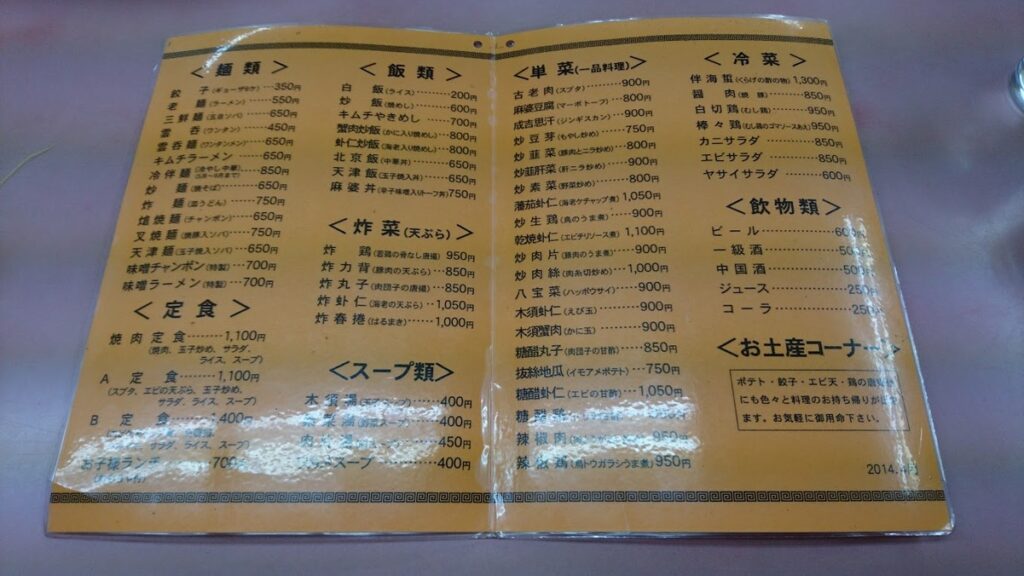 ＜麺類＞
餃子(ギョーザ6ケ)…350円
老麺(ラーメン)…550円
三鮮麺(五目ソバ)…650円
雲呑(ワンタン)…450円
雲呑麺(ワンタンメン)…650円
キムチラーメン…650円
冷伴麺(冷やし中華)…850円
炒麺(焼そば)…650円
炸麺(皿うどん)…750円
熗焼麺(チャンポン)…650円
叉焼麺(焼豚入ソバ)…750円
天津麺(玉子焼入ソバ)…650円
味噌チャンポン(特製)…700円
味噌ラーメン(特製)…700円
＜定食＞
焼肉定食…1,100円
(焼肉、玉子炒め、サラダ、
ライス、スープ)
A定食…1,100円
(スブタ、エビの天ぷら、玉子炒め、
サラダ、ライス、スープ)
B定食…1,400円
サラダ、ライス、スープ)
お子様ランチ…700円
＜飯類＞
白飯(ライス)…200円
炒飯(焼めし)…600円
キムチやきめし…700円
蟹肉炒飯(かに入り焼めし)…800円
虾仁炒飯(海老入り焼めし)…800円
北京飯(中華丼)…650円
天津飯(玉子焼入丼)…650円
麻婆丼(辛子味噌入りトーフ丼)750円
＜炸菜(天ぷら)＞
炸鶏(若鶏の骨なし唐揚)950円
炸力背(豚肉の天ぷら)…850円
炸丸子(肉団子の唐揚)…850円
炸虾仁(海老の天ぷら)…1,050円
炸春捲(はるまき)…1,000円
＜スープ類＞
木須湯(玉子スープ)…400円
(野菜スープ)…400円
肉…450円
スープ…400円
＜単菜(一品料理)＞
古老肉(スブタ)…900円
麻婆豆腐(マーボトーフ)…800円
成吉思汗(ジンギスカン)…900円
炒豆芽(もやし炒め)…750円
炒韮菜(豚肉とニラ炒め)…800円
炒韮肝菜(肝ニラ炒め)…900円
炒素菜(野菜炒め)…800円
藩茄虾仁(海老ケチャップ煮)1,050円
炒生鶏(鳥のうま煮)…900円
乾焼虾仁(エビチリソース煮)1,100円
炒肉片(豚肉のうま煮)…900円
炒肉絲(肉糸切炒め)…1,000円
八宝菜(ハッポウサイ)…900円
木須虾仁(えび玉)…900円
木須蟹肉(かに玉)…900円
糖醋丸子(肉団子の甘酢)…850円
抜絲地瓜(イモアメポテト)…750円
糖醋虾仁(エビの甘酢)…1,050円
糖醋
辣椒肉950円
辣椒鶏(鳥トウガラシうま煮)950円
＜冷菜＞
伴海蜇(くらげの酢の物)1,300円
醤肉(焼豚)…850円
白切鶏(むし鶏)…950円
棒々鶏(むし鶏のゴマソースあえ)950円
カニサラダ…850円
エビサラダ…850円
ヤサイサラダ…600円
＜飲物類＞
ビール…600円
一級酒…500円
中国酒…500円
ジュース…250円
コーラ…250円
＜お土産コーナー＞
ポテト・餃子・エビ天・鶏の唐揚
にも色々と料理のお持ち帰りが出
ます。お気軽に御用命下さい。
2014.4月